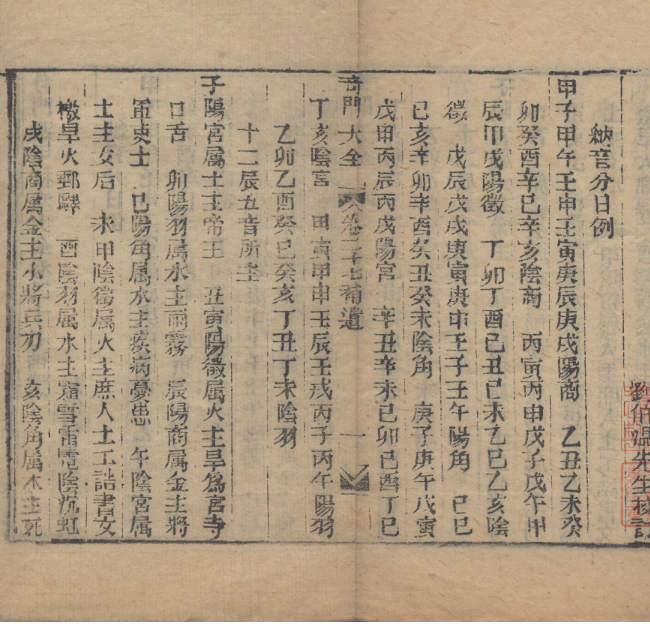 劉伯溫先生校訂
納音分日例
甲子甲午壬申壬寅庚辰庚戌陽商 乙丑乙未癸
卯癸酉辛巳辛亥陰商 丙寅丙申戊子戊午甲
辰甲戌陽徵 丁卯丁酉己丑己未乙巳乙亥陰
徵 戊辰戊戌庚寅庚申壬子壬午陽角 己巳
己亥辛卯辛酉癸丑癸未陰角 庚子庚午戊寅
戊申丙辰丙戌陽宮 辛丑辛未己卯己酉丁巳
奇門大全 卷二十七補遺 一
丁亥陰宮 甲寅甲申壬辰壬戌丙子丙午陽羽
乙卯乙酉癸巳癸亥丁丑丁未陰羽
十二辰五音所主
子陽宮属土主帝王 丑寅陽徵属火主旱為宮寺
口舌 卯陽羽属水主雨霧 辰陽商属金主將
軍吏士 巳陽角属水主疾病憂患 午陰宮属
土主女后 未申陰徵属火主庶人土工詔書文
檄旱火郵驛 酉陰羽属水主霜雪雷電陰沉虹
戌陰商属金主小將兵刃 亥陰角属木主死